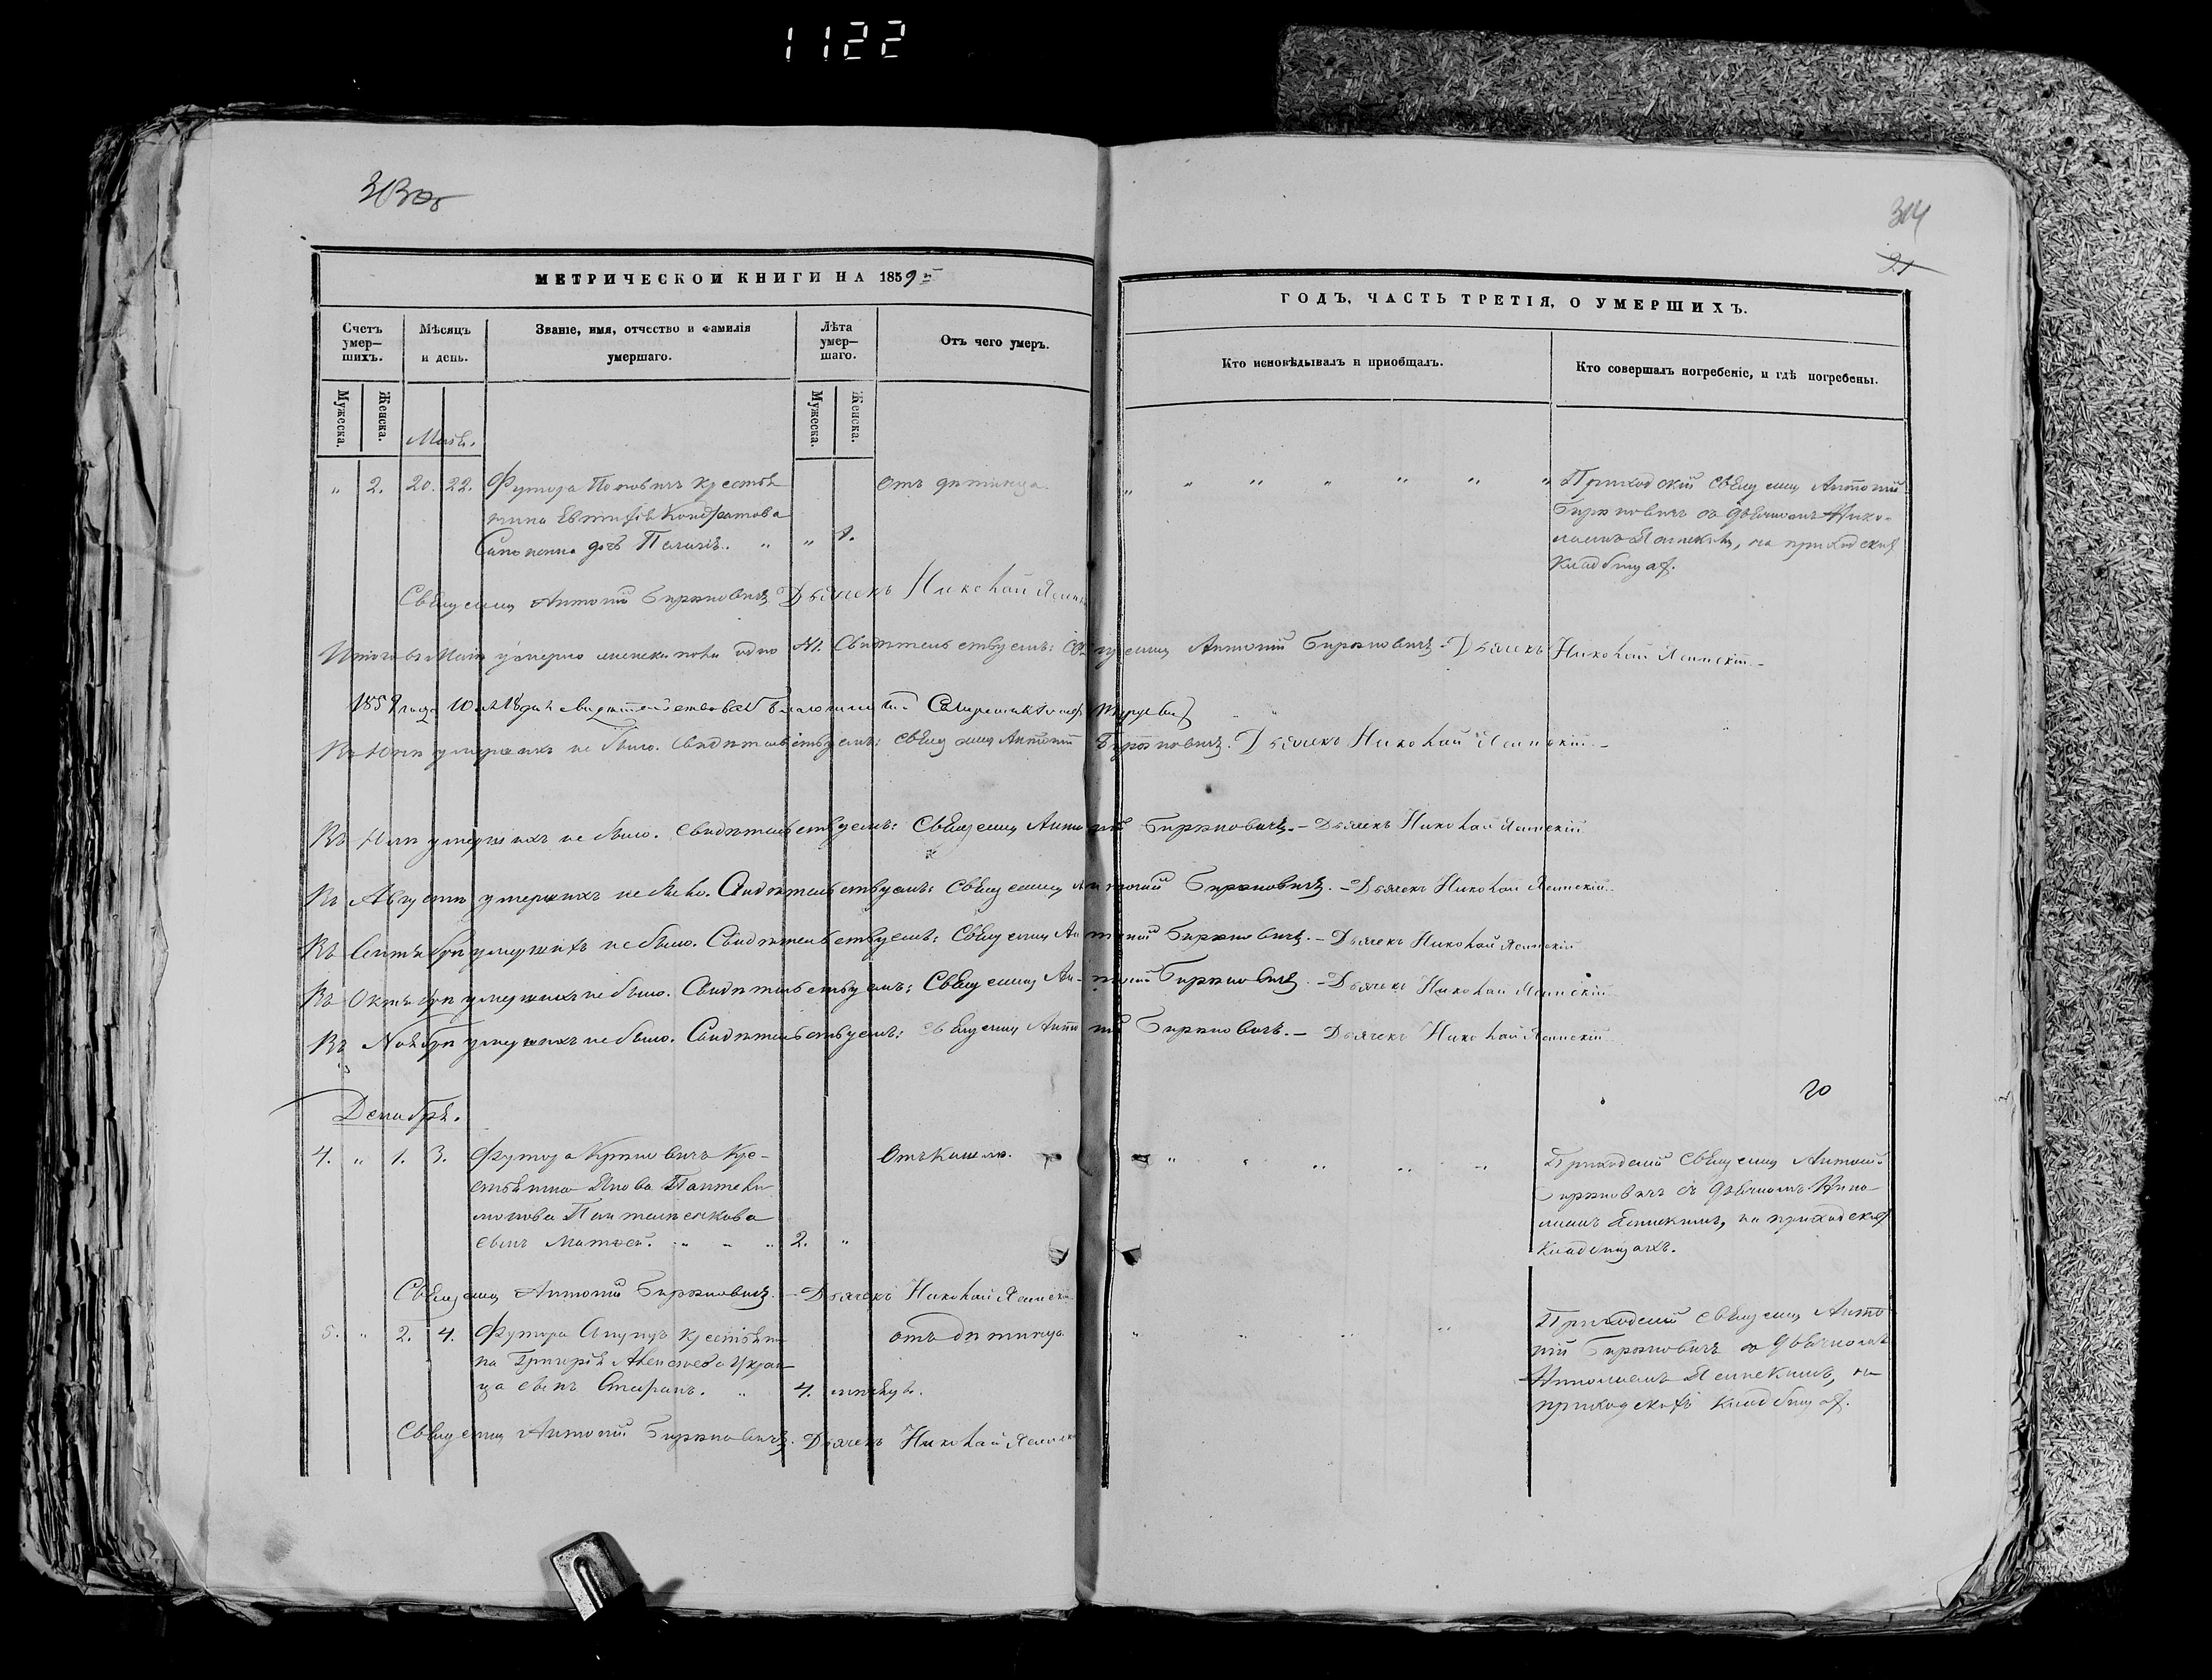 1122
303об
304
21
МЕТРИЧЕСКОЙ КНИГИ НА 1859й
ГОДЪ, ЧАСТЬ ТРЕТІЯ, О УМЕРШИХЪ.
Счетъ умер—шихъ.
Мѣсяцъ и день.
Званіе, имя, отчество и фамилія умершаго.
Лѣта умер—шаго.
Отъ чего умеръ.
Кто исповѣдывалъ и пріобщалъ.
Кто совершалъ погребеніе, и гдѣ погребены.
Мужеска.
Женска.
Мужеска.
Женска.
Май.
" 2. 20. 22. Футора Поповичъ крестья
нина Евтихія Кондратова
дочь Пелагія. " " 1.
Отъ дитинца.
Приходскій Священ Антоній
Биржновичъ съ дьячкомъ Нико-
лаемъ Ясинским, на приходских
кладбищах.
Священ Антоній Биржновичъ Дьячекъ Николай Ясинскій
Итого въ Маѣ умерло женска пола одно №1. Свидѣтельствуемъ: Священ Антоній Биржновичъ - Дьячекъ Николай Ясинскій.-
1859 года 10 дня свидѣтельствовалъ
Въ Юнѣ умершихъ не было. Свидѣтельствуемъ: Священ Антоній Биржновичъ. Дьячекъ Николай Ясинскій.-
Въ Юлѣ умершихъ не было. Свидѣтельствуемъ: Священ Антоній Биржновичъ. - Дьячекъ Николай Ясинскій
Въ Августѣ умершихъ не было. Свидѣтельствуемъ: Священ Антоній Биржновичъ. - Дьячекъ Николай Ясинскій.
Въ Сентябрѣ умершихъ не было. Свидѣтельствуемъ: Священ Антоній Биржновичъ. - Дьячекъ Николай Ясинскій
Въ Октябрѣ умершихъ не было. Свидѣтельствуемъ: Священ Антоній Биржновичъ. - Дьячекъ Николай Ясинскій
Въ Ноябрѣ умершихъ не было. Свидѣтельствуемъ: Священ Антоній Биржновичъ. - Дьячекъ Николай Ясинскій
20
Декабрь.
4. " 1. 3. Футора Кутновичъ Кре-
стьянина Якова Пантели
монова
сынъ Матѳей. " " " 2. "
Отъ кашля.
Приходскій Священ Антоній
Биржновичъ съ дьячкомъ Нико-
лаемъ Ясинскимъ, на приходских
кладбищахъ.
Священ Антоній Биржновичъ. - Дьячекъ Николай Ясинскій
5. " 2. 4. Футора крестьяни
на Григорія Алексеева Украин
ца сынъ Стефанъ. " 4. мѣсяцъ.
отъ дитинца
Приходскій Священ Анто
ній Биржновичъ съ дьячкомъ
Николаемъ Ясинскимъ, на
приходскихъ кладбищах.
Священ Антоній Биржновичъ. Дьячекъ Николай Ясинскій